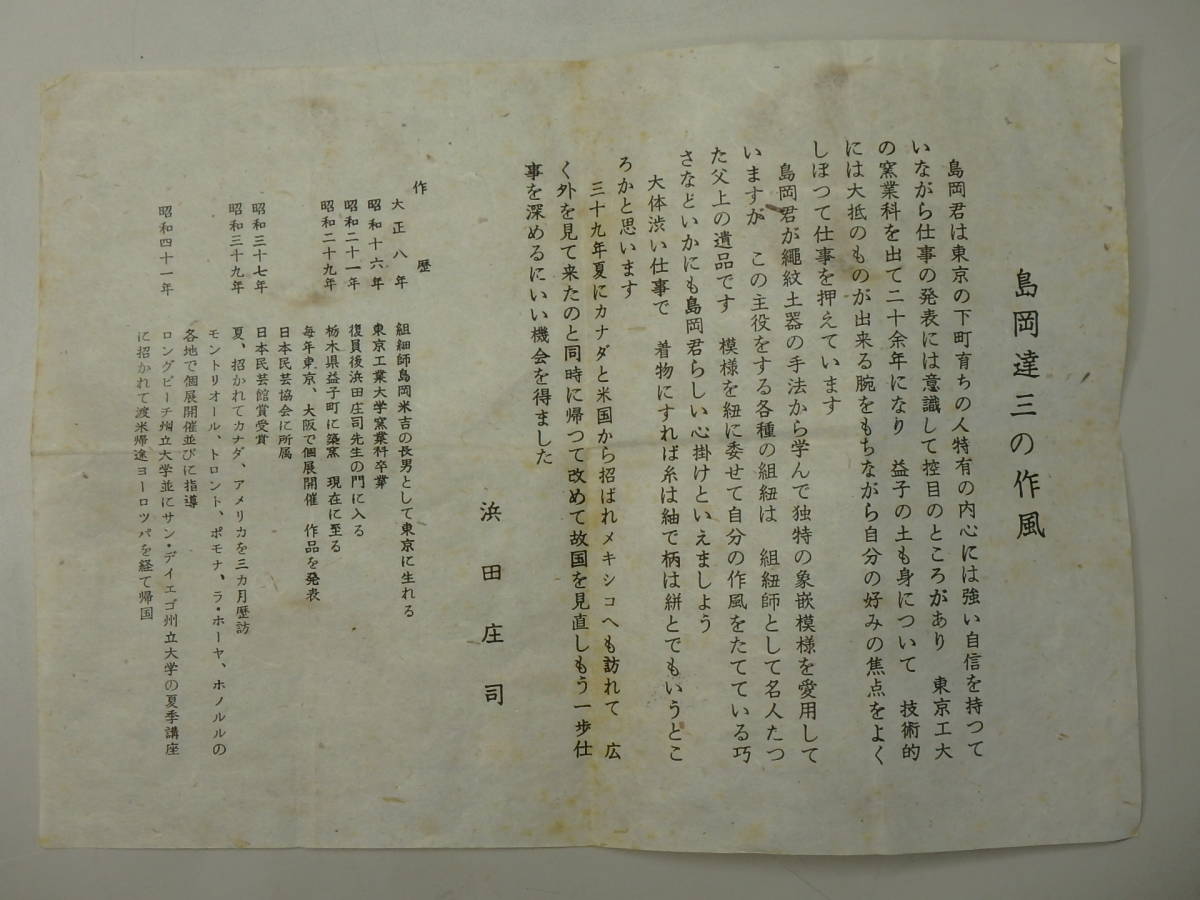 島岡達三の作風
島岡君は東京の下町育ちの人特有の内心には強い自信を持つて
いながら仕事の発表には意識して控目のところがあり 東京工大
の窯業科を出て二十余年になり 益子の土も身について 技術的
には大抵のものが出来る腕をもちながら自分の好みの焦点をよく
しぼつて仕事を押えています
島岡君が繩紋土器の手法から学んで独特の象嵌模様を愛用して
いますが この主役をする各種の組紐は 組紐師として名人たつ
た父上の遺品です 模様を紐に委せて自分の作風をたてている巧
さなどいかにも島岡君らしい心掛けといえましよう
大体渋い仕事で 着物にすれば糸は紬で柄は絣とでもいうとこ
ろかと思います
三十九年夏にカナダと米国から招ばれメキシコへも訪れて 広
く外を見て来たのと同時に帰つて改めて故国を見直しもう一歩仕
事を深めるにいい機会を得ました
浜田庄司
作歴
大正八年 組細師島岡米吉の長男として東京に生れる
昭和十六年 東京工業大学窯業科卒業
昭和二十一年 復員後浜田庄司先生の門に入る
昭和二十九年 栃木県益子町に築窯 現在に至る
毎年東京、大阪で個展開催 作品を発表
日本民芸協会に所属
昭和三十七年 日本民芸館賞受賞
昭和三十九年 夏、招かれてカナダ、アメリカを三カ月歴訪
モントリオール、トロント、ポモナ、ラ・ホーヤ、ホノルルの
各地で個展開催並びに指導
昭和四十一年 ロングビーチ州立大学並にサン・デイエゴ州立大学の夏季講座
に招かれて渡米帰途ヨーロツパを経て帰国